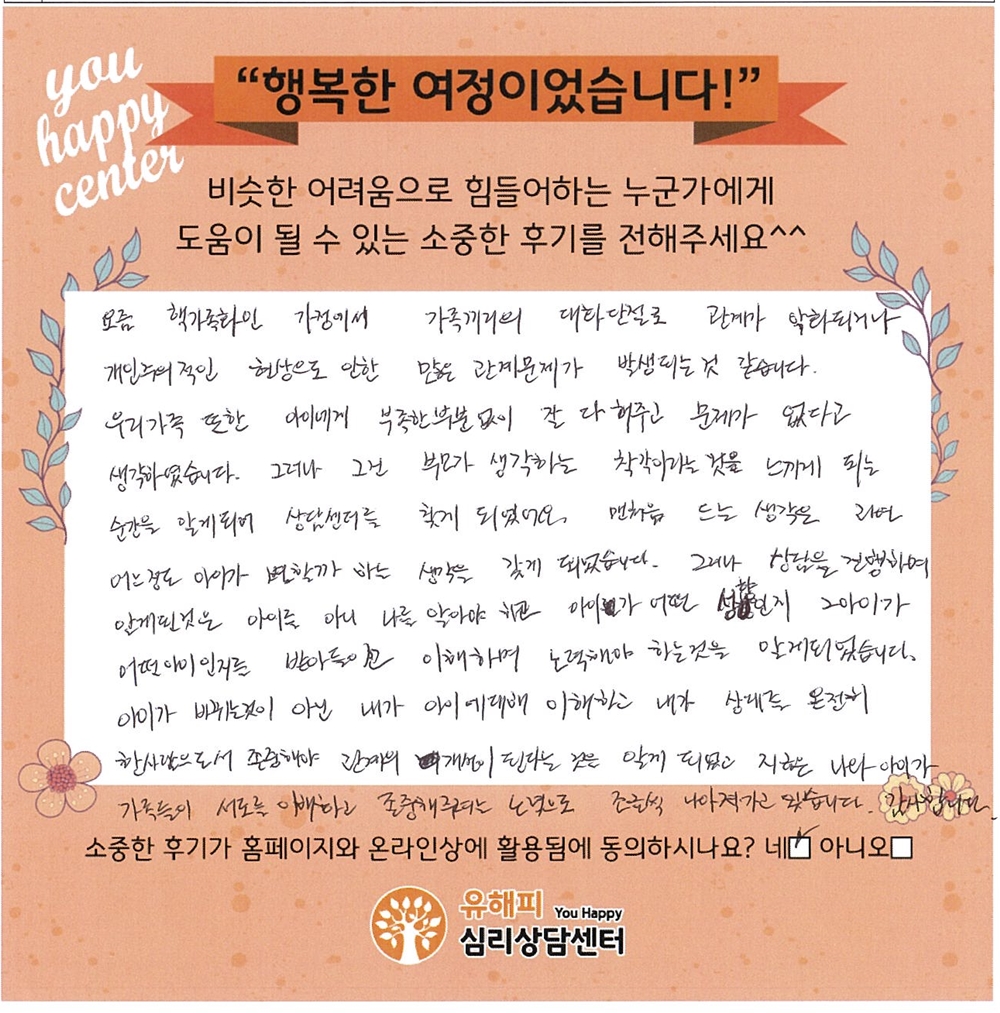 you
happy
center
“행복한 여정이었습니다!”
비슷한 어려움으로 힘들어하는 누군가에게
도움이 될 수 있는 소중한 후기를 전해주세요^^
요즘 핵가족화인 가정에서 가족끼리의 대화단절로 관계가 악화되거나
개인주의적인 현상으로 인한 많은 관계문제가 발생되는 것 같습니다.
우리가족 또한 아이에게 부족한부분없이 잘 다 해주고 문제가 없다고
생각하였습니다. 그러나 그건 부모가 생각하는 착각이라는 것을 느끼게 되는
순간을 알게되어 상담센터를 찾게 되었어요. 맨처음 드는 생각은 과연
어느정도 아이가 변할까 하는 생각을 갖게 되었습니다. 그러나 상담을 진행하며
알게된것은 아이를 아니 나를 알아야 하고 아이가 어떤 성향인지 그아이가
어떤아이인지를 받아들이고 이해하며 노력해야 하는것을 알게되었습니다.
아이가 바뀌는것이 아닌 내가 아이에대해 이해하고 내가 상대를 온전히
한사람으로서 존중해야 관계의 개선이 된다는 것을 알게 되었고 지금은 나와 아이가
가족들이 서로를 이해하고 존중해주려는 노력으로 조금씩 나아져가고 있습니다. 감사합니다.
소중한 후기가 홈페이지와 온라인상에 활용됨에 동의하시나요? 네☑ 아니오□
유해피 You Happy
심리상담센터